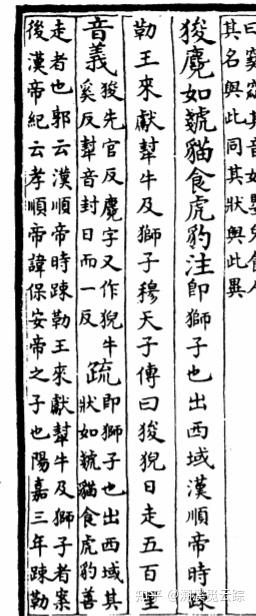 曰窫窳其音如嬰兒食人
其名與此同其狀與此異
狻麑如虦貓食虎豹注即獅子也出西域漢順帝時疎
勒王來獻犎牛及獅子穆天子傳曰狻猊日走五百里
音義
狻先官反麑字又作猊牛
奚反犎音封日而一反
疏
即獅子也出西域其
狀如虦貓食虎豹善
走者也郭云漢順帝時疎勒王來獻犎牛及獅子者案
後漢帝紀云孝順帝諱保安帝之子也陽嘉三年疎勒
知乎